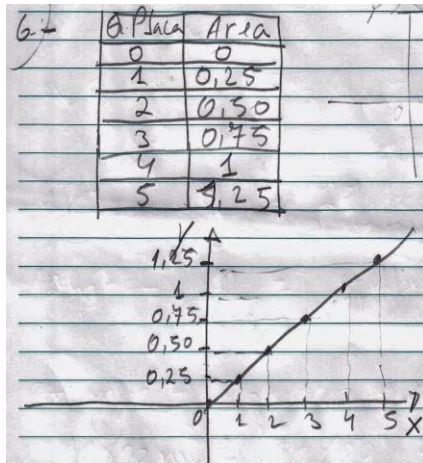 6-
Q.Placa Area
0 0
1 0,25
2 0,50
3 0,75
4 1
5 1,25
Y
1,25
1
0,75
0,50
0,25
0 1 2 3 4 5 X